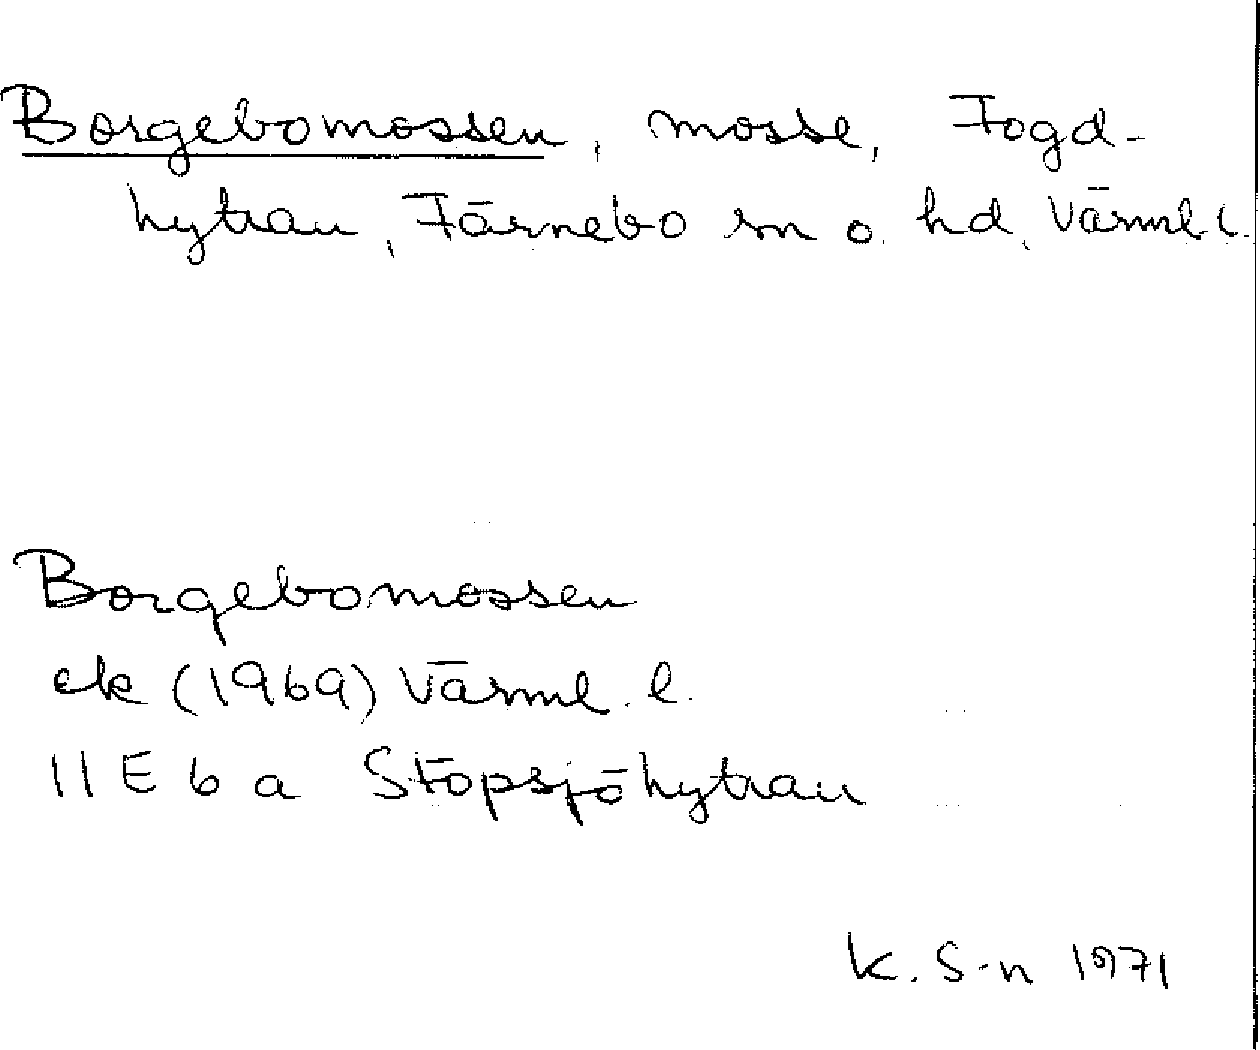 Borgebomossen, mosse, Fogd-
hyttan, Färnebo sn o. hd, Värml. l.
Borgebomossen
ek (1969) Värml. l.
11 E 6 a Stöpsjöhyttan
K. S-n 1971